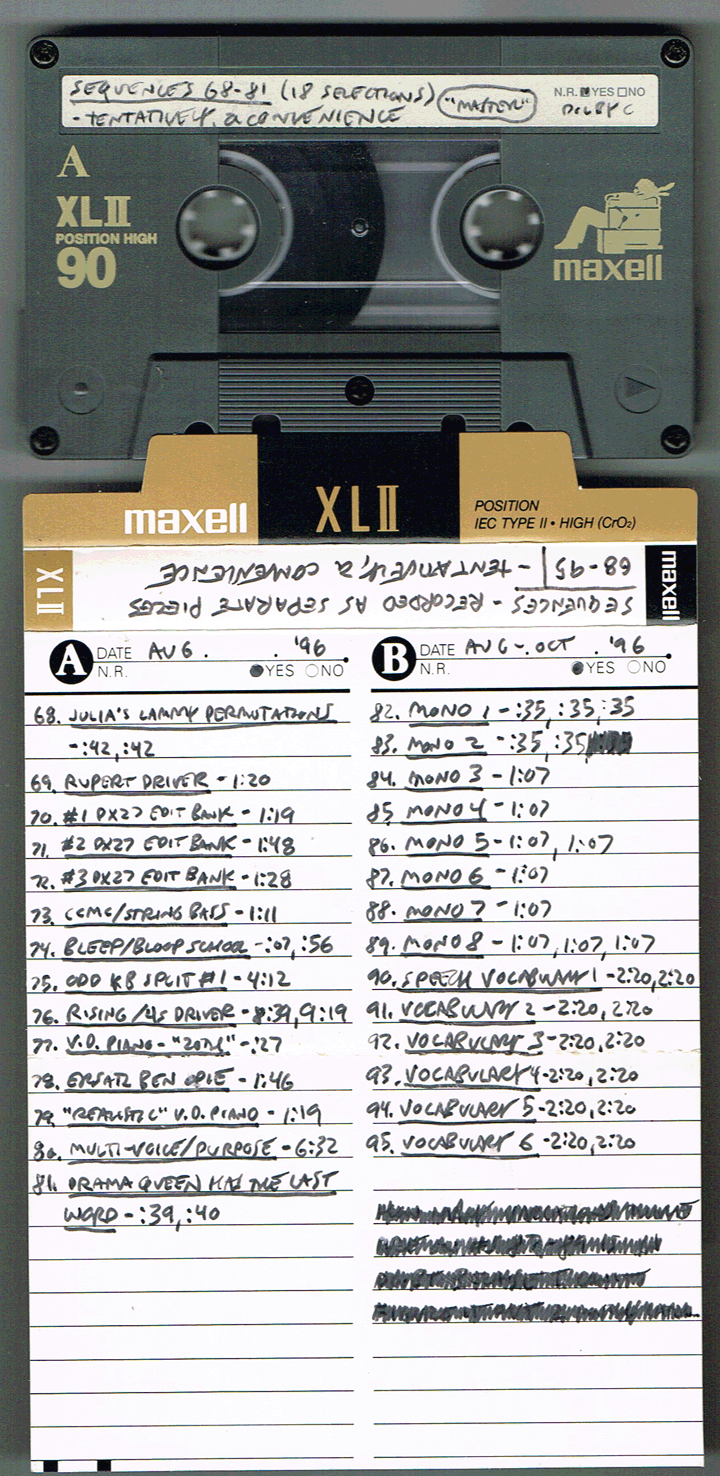 SEQUENCES 68-81 (18 SELECTIONS) "MASTER"
- TENTATIVELY, A CONVENIENCE
N.R. YES NO
DOLBY C
A
XLII
POSITION HIGH
90
maxell
maxell
XLII
POSITION
IEC TYPE II • HIGH (CrO₂)
XLII
maxell
SEQUENCES - RECORDED AS SEPARATE PIECES
68-95 - TENTATIVELY, A CONVENIENCE
A DATE AUG. '96
N.R. YES NO
68. JULIA'S LAMMY PERMUTATIONS
- :42, :42
69. RUPERT DRIVER - 1:20
70. #1 DX27 EDIT BANK - 1:19
71. #2 DX27 EDIT BANK - 1:48
72. #3 DX27 EDIT BANK - 1:28
73. CCMC/STRING BASS - 1:11
74. BLEEP/BLOOP SCHOOL - :07, :56
75. ODD KB SPLIT #1 - 4:12
76. RISING/45 DRIVER - 8:39, 9:19
77. V.D. PIANO - - :27
78. ERSATZ BEN OPIE - 1:46
79. "REALISTIC" V.D. PIANO - 1:19
80. MULTI-VOICE/PURPOSE - 6:32
81. DRAMA QUEEN HAS THE LAST
WORD - :39, :40
B DATE AUG-OCT. '96
N.R. YES NO
82. MONO 1 - :35, :35, :35
83. MONO 2 - :35, :35
84. MONO 3 - 1:07
85. MONO 4 - 1:07
86. MONO 5 - 1:07, 1:07
87. MONO 6 - 1:07
88. MONO 7 - 1:07
89. MONO 8 - 1:07, 1:07, 1:07
90. SPEECH VOCABULARY 1 - 2:20, 2:20
91. VOCABULARY 2 - 2:20, 2:20
92. VOCABULARY 3 - 2:20, 2:20
93. VOCABULARY 4 - 2:20, 2:20
94. VOCABULARY 5 - 2:20, 2:20
95. VOCABULARY 6 - 2:20, 2:20